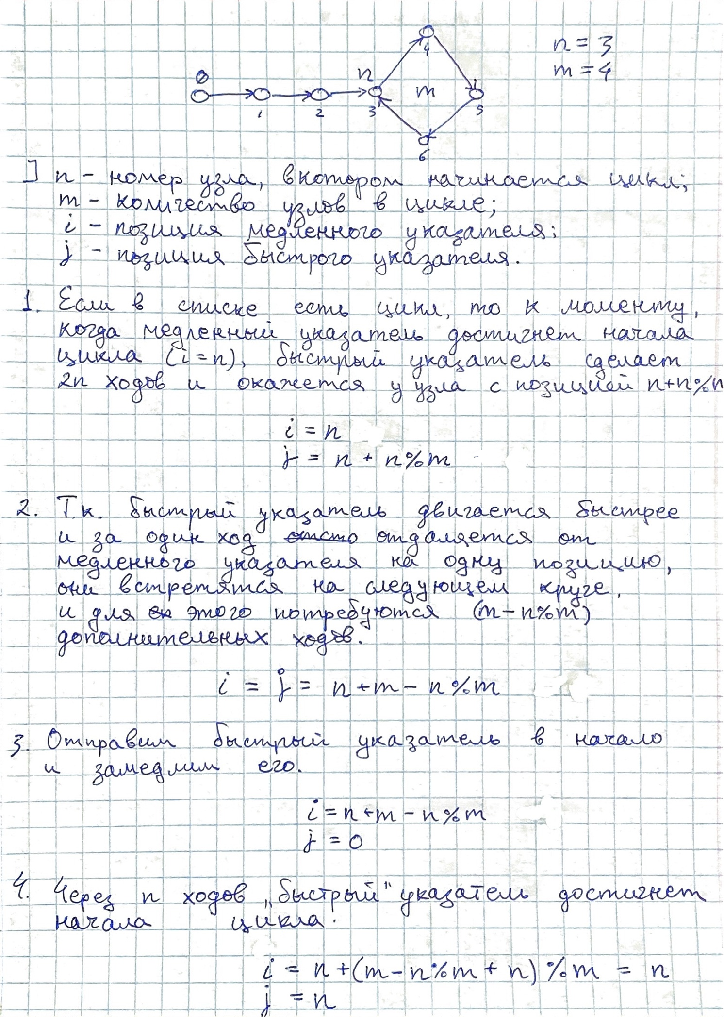 n = 3
m = 4
0
n
4
m
1
2
3
5
6
] n - номер узла, в котором начинается цикл;
m - количество узлов в цикле;
i - позиция медленного указателя;
j - позиция быстрого указателя.
1. Если в списке есть цикл, то к моменту,
когда медленный указатель достигнет начала
цикла (i = n), быстрый указатель сделает
2n ходов и окажется у узла с позицией n+n%m
i = n
j = n + n%m
2. Т.к. быстрый указатель двигается быстрее
и за один ход отдаляется от
медленного указателя на одну позицию,
они встретятся на следующем круге,
и для этого потребуются (m-n%m)
дополнительных ходов.
i = j = n+m-n%m
3. Отправим быстрый указатель в начало
и замедлим его.
i = n+m-n%m
j = 0
4. Через n ходов „быстрый" указатель достигнет
начала цикла.
i = n+(m-n%m+n)%m = n
j = n